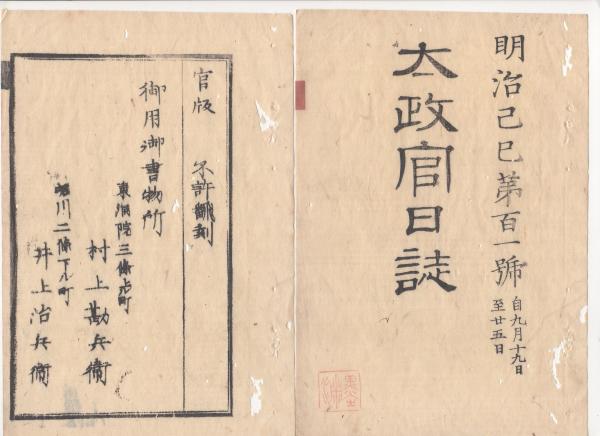 明治己巳第百一號
自九月十九日
至廿五日
太政官日誌
官版
不許翻刻
御用御書物所
東洞院三條上ル町
村上勘兵衞
堀川二條下ル町
井上治兵衞